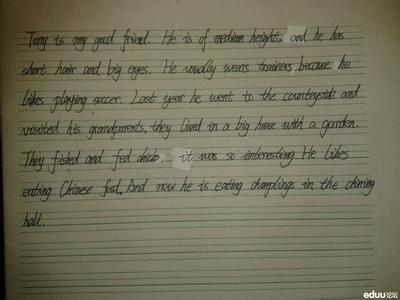 Tony is my good friend. He is of medium height, and he has
short hair and big eyes. He usually wears trainers because he
likes playing soccer. Last year he went to the countryside and
visited his grandparents, they lived in a big house with a garden.
They fished and fed chicks, it was so interesting. He likes
eating Chinese food. And now he is eating dumplings in the dining
hall.
eduu论坛